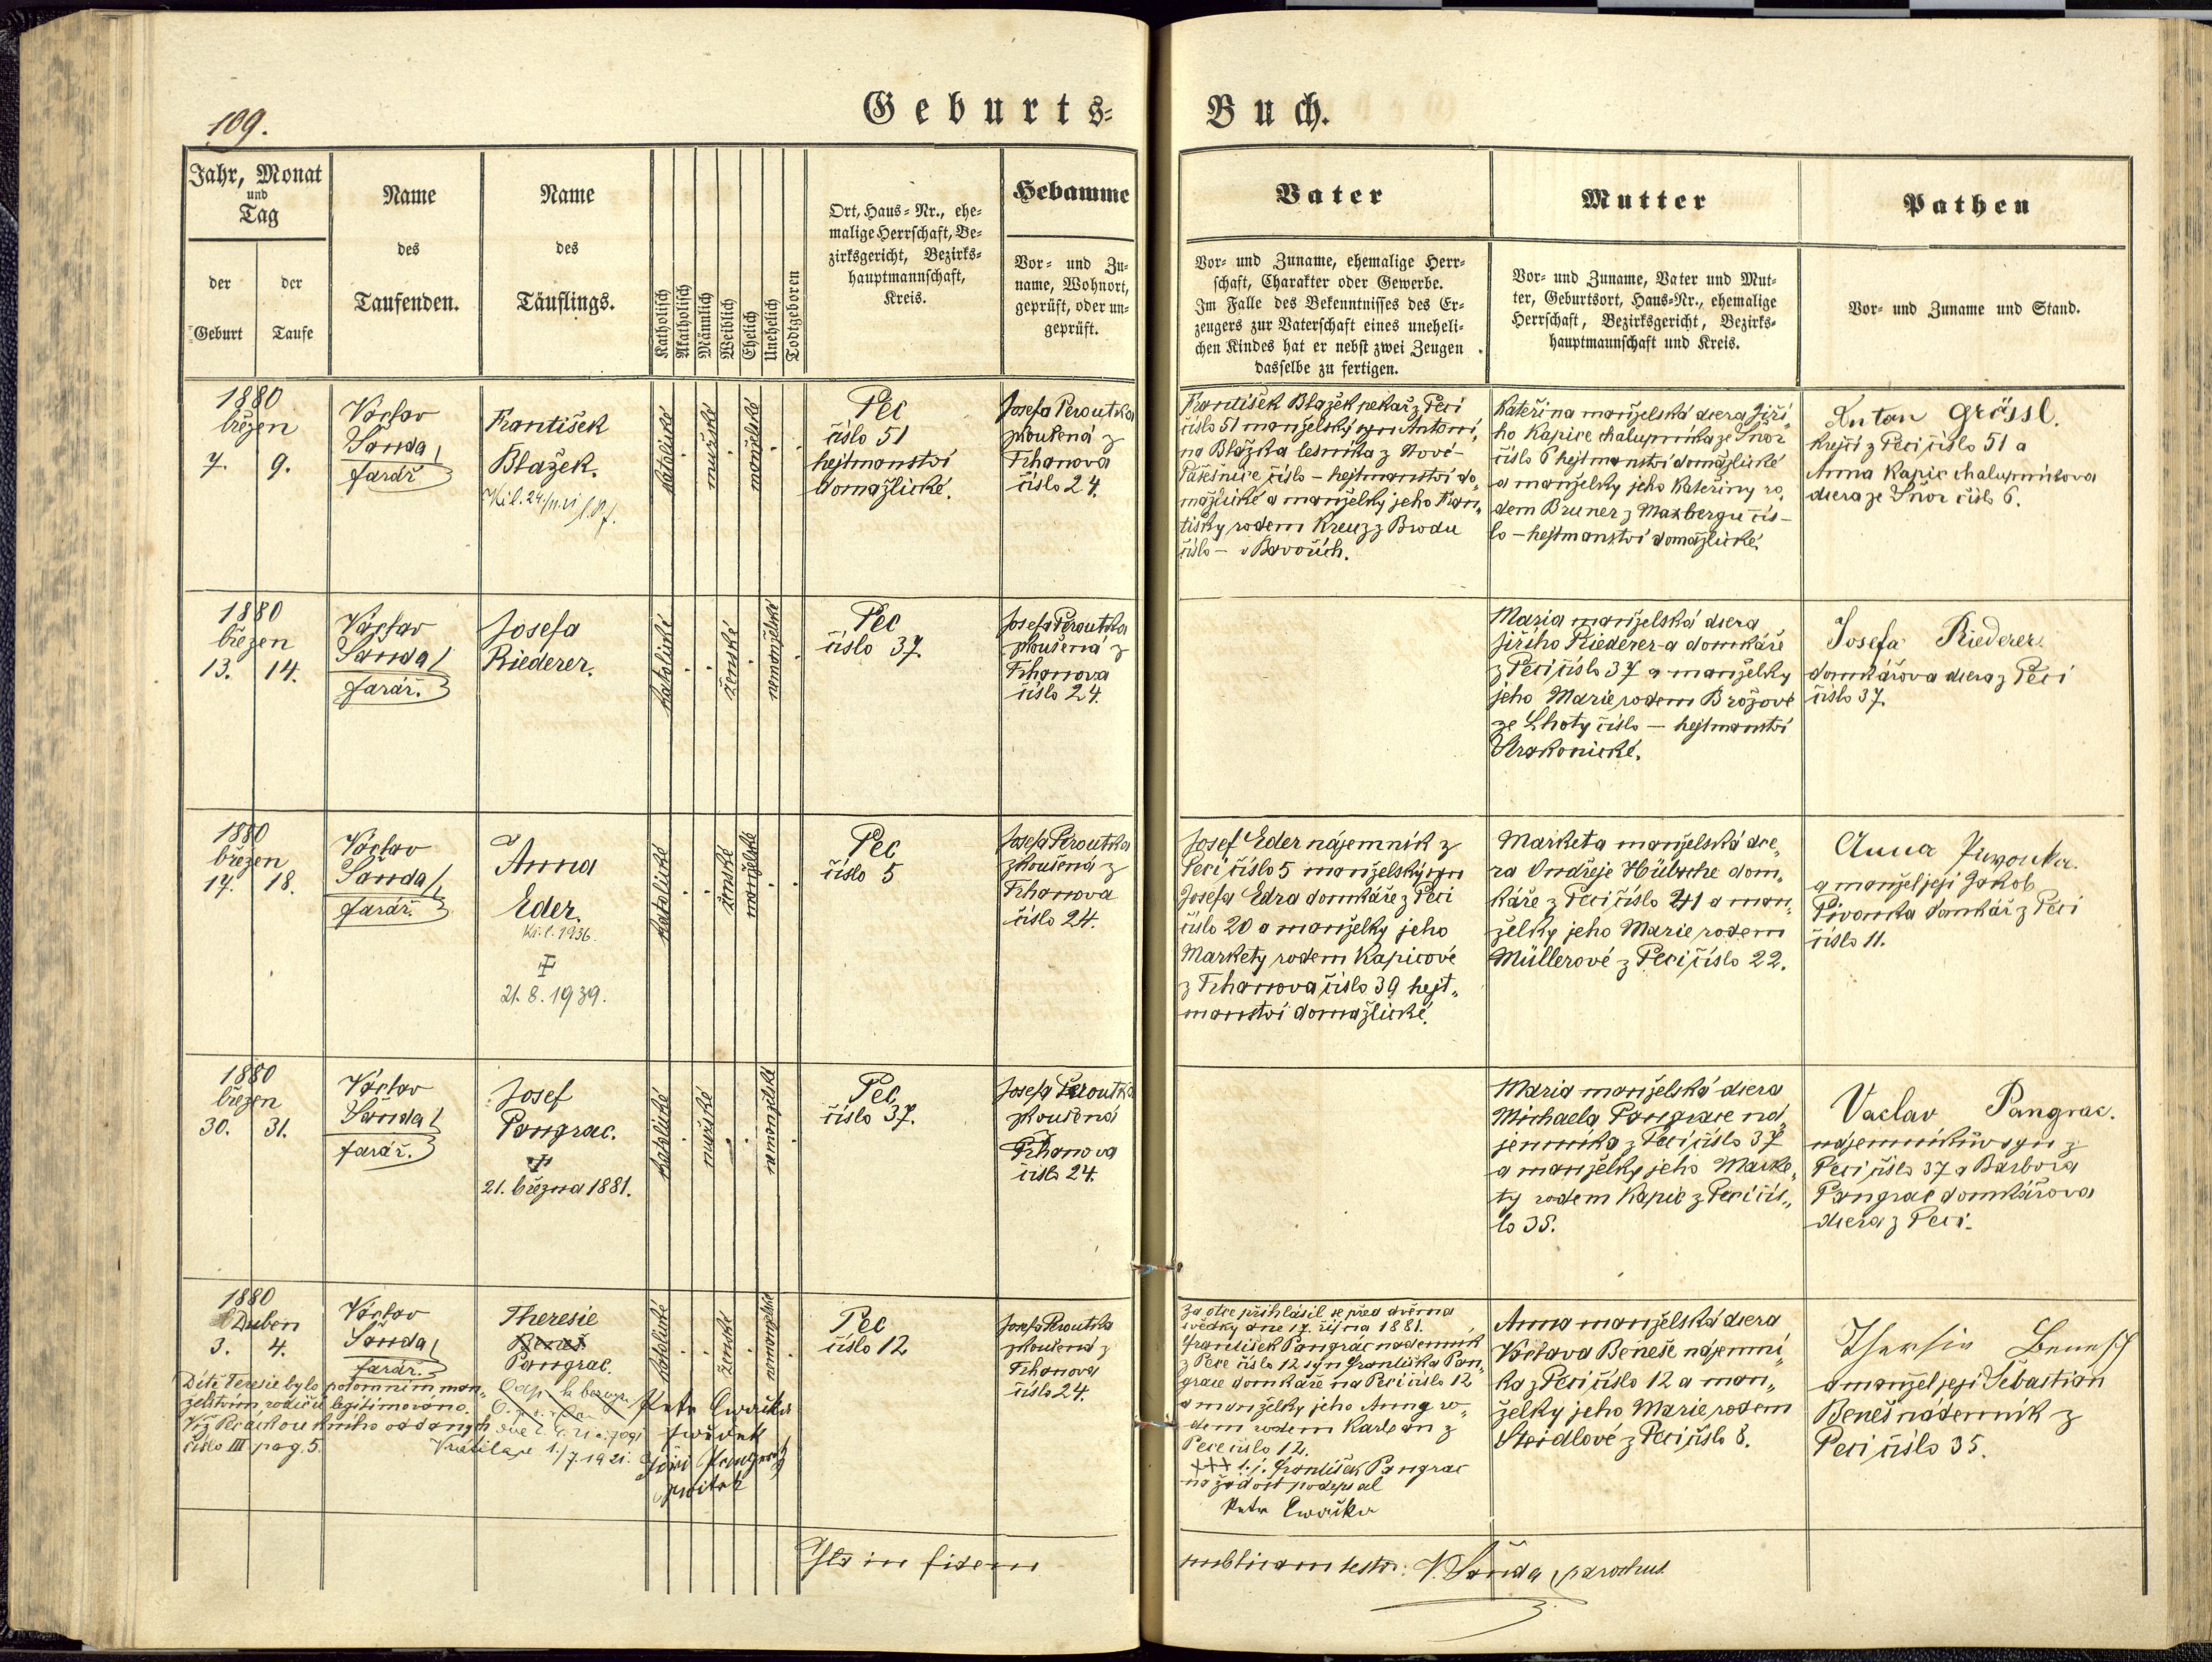 109.
Geburts-
Buch.
Jahr, Monat
und
Tag
der
Geburt
der
Taufe
Name
des
Taufenden.
Name
des
Täuflings.
Katholisch
Akatholisch
Männlich
Weiblich
Ehelich
Unehelich
Todtgeboren
Ort, Haus-Nr., ehe-
malige Herrschaft, Be-
zirksgericht, Bezirks-
hauptmannschaft,
Kreis.
Hebamme
Vor- und Zu-
name, Wohnort,
geprüft, oder un-
geprüft.
Vater
Vor- und Zuname, ehemalige Herr-
schaft, Charakter oder Gewerbe.
Im Falle des Bekenntnisses des Er-
zeugers zur Vaterschaft eines uneheli-
chen Kindes hat er nebst zwei Zeugen
dasselbe zu fertigen.
Mutter
Vor- und Zuname, Vater und Mut-
ter, Geburtsort, Haus-Nr., ehemalige
Herrschaft, Bezirksgericht, Bezirks-
hauptmannschaft und Kreis.
Pathen
Vor- und Zuname und Stand.
1880
březen
7. 9.
Václav
Šanda
farář.
František
Blažek.
katolické
mužské
manželské
Pec
číslo 51
hejtmanství
domažlické.
Josefa Peroutka
zkoušená z
Trhanova
číslo 24.
František Blažek pekař z Peci
číslo 51 manželský syn Antoní„
na Blažka lesníka z Nové-
Pasešnice číslo – hejtmanství do„
mažlické a manželky jeho Fran„
tišky rodem Kreuz z Brodu
číslo – v Bavořích.
Kateřina manželská dcera Jiří„
ho Kapice chalupníka ze Šnor
číslo 6 hejtmanství domažlické
a manželky jeho Kateřiny ro„
dem Bruner z Maxbergu čís-
lo – hejtmanství domažlické.
Anton Grössl.
krejčí z Peci číslo 51 a
Anna Kapic chalupníkova
dcera ze Šnor číslo 6.
1880
březen
13. 14.
Václav
Šanda
farář.
Josefa
Riederer.
katolické
ženské
nemanželské
Pec
číslo 37.
Josefa Peroutka
zkoušená z
Trhanova
číslo 24.
Maria manželská dcera
Jiřího Riederer-a domkáře
z Peci číslo 37 a manželky
jeho Marie rodem Brožové
ze Lhoty číslo – hejtmanství
Strakonické.
Josefa Riederer.
domkářova dcera z Peci
číslo 37.
1880
březen
17. 18.
Václav
Šanda
farář.
Anna
Eder.
1936.
21. 8. 1939.
katolické
ženské
manželské
Pec
číslo 5
Josefa Peroutka
zkoušená z
Trhanova
číslo 24.
Josef Eder nájemník z
Peci číslo 5 manželský syn
Josefa Edra domkáře z Peci
číslo 20 a manželky jeho
Markety rodem Kapicové
z Trhanova číslo 39 hejt„
manství domažlické.
Marketa manželská dce„
ra Ondřeje Hübsche dom„
káře z Peci číslo 41 a man„
želky jeho Marie rodem
Müllerové z Peci číslo 22.
Anna Piwonka.
a manžel její Jakob
Pivonka domkář z Peci
číslo 11.
1880
březen
30. 31.
Václav
Šanda
farář.
Josef
Pangrac.
21. března 1881.
katolické
mužské
nemanželské
Pec
číslo 37.
Josefa Peroutka
zkoušená
Trhanova
číslo 24.
Maria manželská dcera
Michaela Pangrace ná„
jemníka z Peci číslo 37
a manželky jeho Marke„
ty rodem Kapic z Peci čís„
lo 35.
Vaclav Pangrac.
nájemníkův syn z
Peci číslo 37 a Barbora
Pangrac domkářova
dcera z Peci.
1880
Duben
3. 4.
Václav
Šanda
farář.
Theresie
Beneš
Pangrac.
katolické
ženské
nemanželské
Pec
číslo 12
Josefa Peroutka
zkoušená z
Trhanova
číslo 24.
Dítě Teresie bylo potomním man„
želstvím rodičů legitimováno.
Viz Peci kniha oddaných
číslo III pag. 5.
1./7. 1921.
Petr Cwačka
swědek
Jiří Pangrac
Za otce přihlásil se před dvěma
svědky dne 17. října 1881.
František Pangrác nádenník
z Pece číslo 12 syn Františka Pan„
grace domkáře na Peci číslo 12
a manželky jeho Anny ro„
dem rodem Karban z
Pece číslo 12.
+++ František Pangrac
na žádost podepsal
Petr Cwačka
Anna manželská dcera
Václava Beneše nájemní„
ka z Peci číslo 12 a man„
želky jeho Marie rodem
Steidlové z Peci číslo 8.
Theresie Benesch
a manžel její Šebastian
Beneš nádenník z
Peci číslo 35.
Ita in fidem
publicam testor: V. Šanda, parochus.